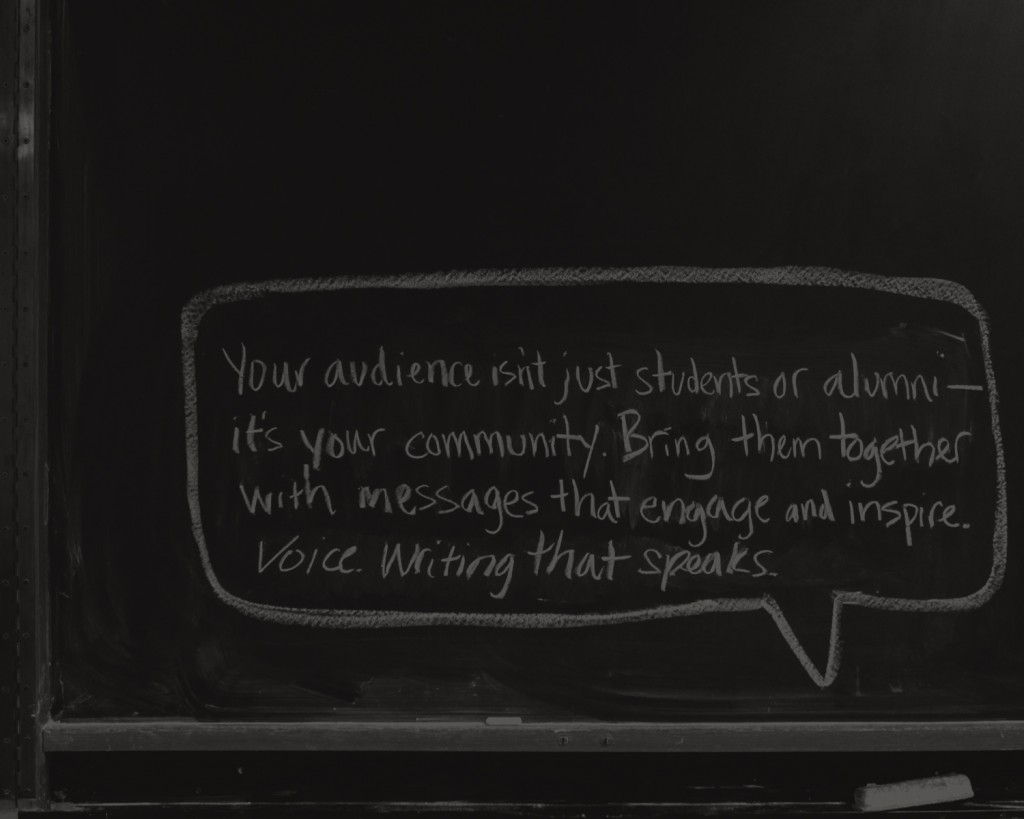 Your audience isn't just students or alumni—
it's your community. Bring them together
with messages that engage and inspire.
Voice. Writing that speaks.